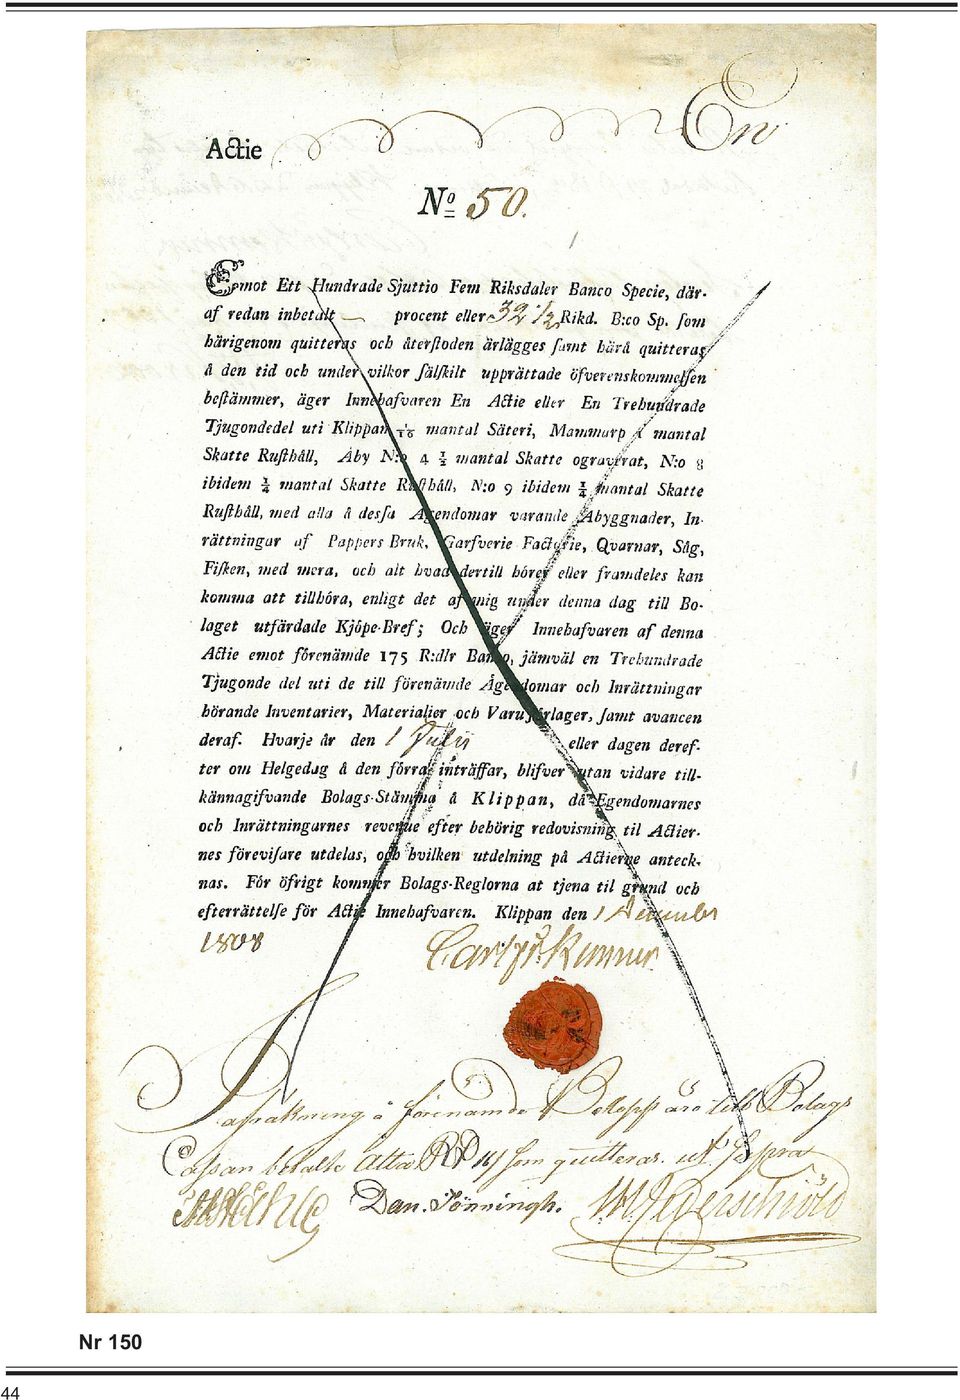 Actie En
No 50.
Emot Ett Hundrade Sjuttio Fem Riksdaler Banco Specie, där-
af redan inbetalt — procent eller 32 1/2 Rikd. B:co Sp. som
härigenom quitteras och återstoden ärlägges samt härå quitteras
å den tid och under vilkor sälskilt upprättade öfverenskommelsen
bestämmer, äger Innehafvaren En Actie eller En Trehundrade
Tjugondedel uti Klippan 1/16 mantal Säteri, Mammarp 1 mantal
Skatte Rusthåll, Åby N:o 4 1/2 mantal Skatte ograverat, N:o 8
ibidem 1/4 mantal Skatte Rusthåll, N:o 9 ibidem 1/4 mantal Skatte
Rusthåll, med alla å dessa Ägendomar varande Åbyggnader, In-
rättningar af Pappers Bruk, Garfverie Facturie, Qvarnar, Såg,
Fisken, med mera, och alt hvad dertill hörer eller framdeles kan
komma att tillhöra, enligt det af mig under denna dag till Bo-
laget utfärdade Kjöpe-Bref; Och äger Innehafvaren af denna
Actie emot förenämde 175 R:dlr Banco, jämväl en Trehundrade
Tjugonde del uti de till förenämde Ägendomar och Inrättningar
hörande Inventarier, Materialier och Varuförlager, samt avancen
deraf. Hvarje år den 1 Julii eller dagen deref-
ter om Helgedag å den förra inträffar, blifver utan vidare till-
kännagifvande Bolags-Stämma å Klippan, då Egendomarnes
och Inrättningarnes revenue efter behörig redovisning til Actier-
nes förevisare utdelas, och hvilken utdelning på Actierne anteck-
nas. För öfrigt kommer Bolags-Reglorna at tjena til grund och
efterrättelse för Actie Innehafvaren. Klippan den 1 December
1808
å förenämde Belopp äro till Bolags
Cassan betalte Rd som quitteras. ut Supra
Dan. Fönningh.
Nr 150
44